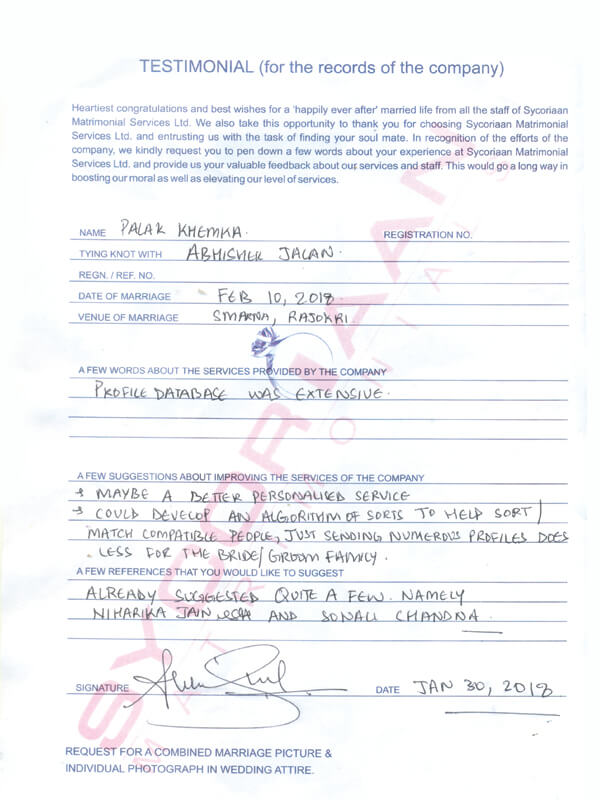 TESTIMONIAL (for the records of the company)
Heartiest congratulations and best wishes for a 'happily ever after' married life from all the staff of Sycoriaan
Matrimonial Services Ltd. We also take this opportunity to thank you for choosing Sycoriaan Matrimonial
Services Ltd. and entrusting us with the task of finding your soul mate. In recognition of the efforts of the
company, we kindly request you to pen down a few words about your experience at Sycoriaan Matrimonial
Services Ltd. and provide us your valuable feedback about our services and staff. This would go a long way in
boosting our moral as well as elevating our level of services.
NAME PALAK KHEMKA. REGISTRATION NO.
TYING KNOT WITH ABHISHEK JALAN.
REGN. / REF. NO.
DATE OF MARRIAGE FEB 10, 2018.
VENUE OF MARRIAGE RAJOKRI.
A FEW WORDS ABOUT THE SERVICES PROVIDED BY THE COMPANY
PROFILE DATABASE WAS EXTENSIVE.
A FEW SUGGESTIONS ABOUT IMPROVING THE SERVICES OF THE COMPANY
→ MAYBE A BETTER PERSONALISED SERVICE
→ COULD DEVELOP AN ALGORITHM OF SORTS TO HELP SORT/
MATCH COMPATIBLE PEOPLE, JUST SENDING NUMEROUS PROFILES DOES
LESS FOR THE BRIDE/GROOM FAMILY.
A FEW REFERENCES THAT YOU WOULD LIKE TO SUGGEST
ALREADY SUGGESTED QUITE A FEW. NAMELY
NIHARIKA JAIN AND SONALI CHANDNA.
SIGNATURE DATE JAN 30, 2018
REQUEST FOR A COMBINED MARRIAGE PICTURE &
INDIVIDUAL PHOTOGRAPH IN WEDDING ATTIRE.
SYCORIAAN
MATRIMONIALS